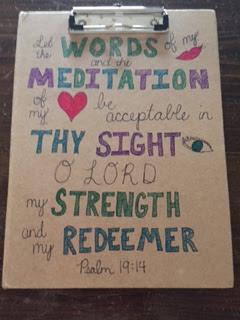 Let the WORDS of my
and the
MEDITATION
of my be
acceptable in
THY SIGHT
O LORD
my STRENGTH
and my REDEEMER
Psalm 19:14